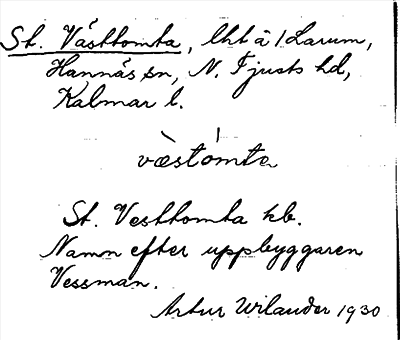 St. Västtomta, lht å /Larum,
Hannäs sn, N. Tjusts hd,
Kalmar l.
væstòmta
St. Vesttomta kb.
Namn efter uppbyggaren
Vessman.
Artur Wilander 1930